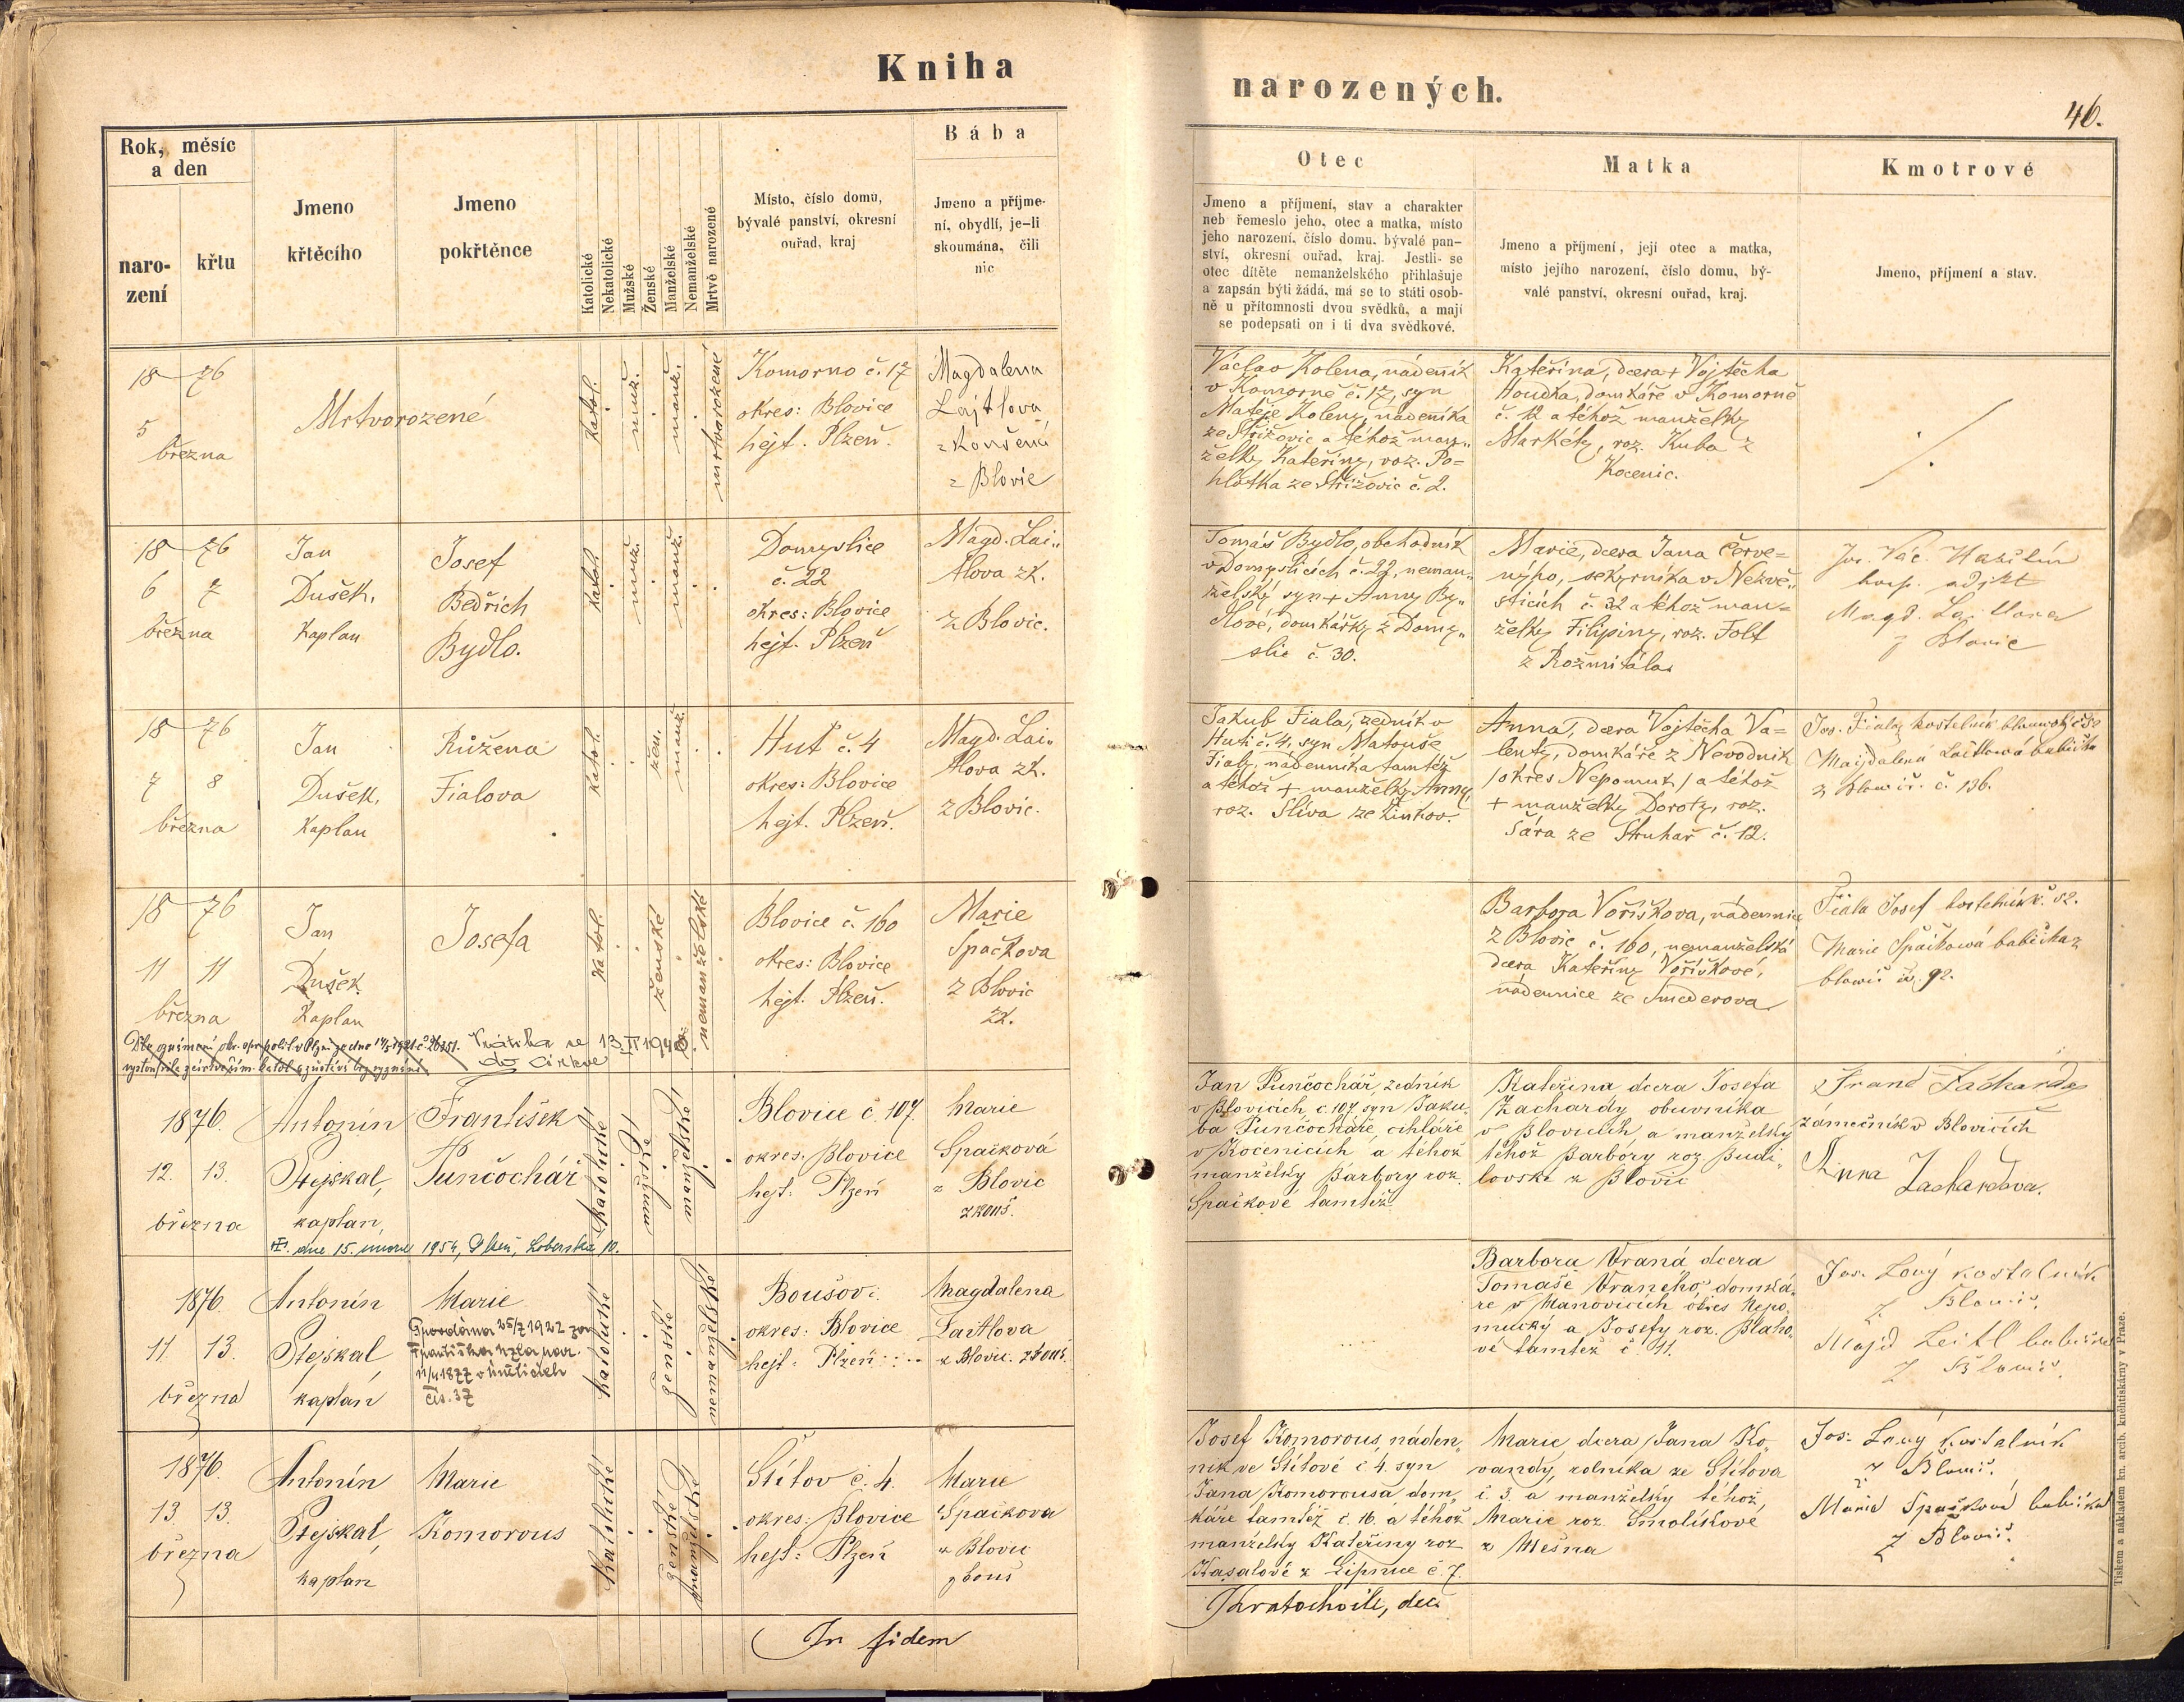 Kniha
narozených.
46.
Rok, měsíc
a den
naro-
zení
křtu
Jmeno
křtěcího
Jmeno
pokřtěnce
Katolické
Nekatolické
Mužské
Ženské
Manželské
Nemanželské
Mrtvě narozené
Místo, číslo domu,
bývalé panství, okresní
ouřad, kraj
Bába
Jmeno a příjme-
ní, obydlí, je-li
skoumána, čili
nic
Otec
Jmeno a příjmení, stav a charakter
neb řemeslo jeho, otec a matka, místo
jeho narození, číslo domu, bývalé pan-
ství, okresní ouřad, kraj. Jestli- se
otec dítěte nemanželského přihlašuje
a zapsán býti žádá, má se to státi osob-
ně u přítomnosti dvou svědků, a mají
se podepsati on i ti dva svědkové.
Matka
Jmeno a příjmení, její otec a matka,
místo jejího narození, číslo domu, bý-
valé panství, okresní ouřad, kraj.
Kmotrové
Jmeno, příjmení a stav.
18 76
5
března
Mrtvorozené
katol.
muž.
manž.
mrtvorozené
Komorno č. 17
okres: Blovice
hejt. Plzeň.
Magdalena
Lajtlova
zkoušená
z Blovic
Václav Kolena, nádeník
v Komorně č. 17, syn
Matěje Koleny, nádeníka
ze Střížovic a téhož man„
želky Kateřiny, roz. Po=
hlotka ze Střížovic č. 2.
Kateřina, dcera + Vojtěcha
Houdka, domkáře v Komorně
č. 12 a téhož manželky
Markéty, roz. Kuba z
Kocenic.
18 76
6 7
března
Jan
Dušek,
Kaplan
Josef
Bedřich
Bydlo.
katol.
muž.
manž.
Domyslice
č. 22
okres: Blovice
hejt. Plzeň
Magd. Lai„
tlova zk.
z Blovic.
Tomáš Bydlo, obchodník
v Domyslicích č. 22, neman„
želský syn + Anny By„
dlové, domkářky z Domy„
slic č. 30.
Marie, dcera Jana Červe=
ného, sekyrníka v Nezvě„
sticích č. 32 a téhož man=
želky Filipiny, roz. Folt
z Rožmitála.
Jos. Vác.
Magd.
z Blovic
18 76
7 8
března
Jan
Dušek,
Kaplan
Růžena
Fialova
katol.
žen.
manž.
Huť č. 4
okres: Blovice
hejt. Plzeň.
Magd. Lai„
tlova zk.
z Blovic.
Jakub Fiala, zedník v
Huti č. 4, syn Matouše
Fialy, nádenníka tamtéž
a téhož + manželky Anny,
roz. Slíva ze Žinkov.
Anna, dcera Vojtěcha Va=
lenty, domkáře z Nevodník
/okres Nepomuk/ a téhož
+ manželky Doroty, roz.
Šára ze Struhař č. 12.
Jos. Fiala, kostelník
Majdalena Laitlowá babička
z č. 136.
18 76
11 11
března
Jan
Dušek.
Kaplan
Josefa
katol.
ženské
nemanželské
Blovice č. 160
okres: Blovice
hejt. Plzeň.
Marie
Spačkova
z Blovic
zk.
Barbora Voříškova, nádennice
z Blovic č. 160, nemanželská
dcera Kateřiny Voříškové,
nádennice ze Smederova
Fiala Josef kostelník č. 52.
Marie Špačkowá babička z
blowic č. 92.
Vrátila se 13.II 1940
do církve
1876.
12. 13.
března
Antonín
Stejskal,
kaplan,
František
Punčochář
katolické
mužské
manželské
Blovice č. 107.
okres. Blovice
hejt: Plzeň
Marie
Spačková
z Blovic
zkouš.
Jan Punčochář, zedník
v Blovicích, č. 107. syn Jaku„
ba Punčocháře, cihláře
v Kocenicích a téhož
manželky Barbory roz.
Spačkové tamtéž.
Kateřina dcera Josefa
Zachardy obuvníka
v Blovicích, a manželky
téhož Barbory roz. Budi„
lovské z Blovic
Franc Zacharda
zámečník v Blovicích
Anna Zachardova.
dne 15. února 1954, Plzeň, 10.
1876.
11. 13.
března
Antonín
Stejskal
kaplan
Marie
Provdána 25/7 1922 za
Františka
11/4 1877 v
čís. 37
katolické
ženské
nemanželské
Boušov:
okres: Blovice
hejt: Plzeň
Magdalena
Laitlova
z Blovic. zkouš.
Barbora Vraná dcera
Tomáše Vraného, domká„
ře v Maňovicích okres Nepo„
mucký a Josefy roz. Blaho„
vé tamtéž č. 11.
Jos. Lový kostelník
z Blowic.
Majd Leitl babička
z Blowic.
1876.
13. 13.
března
Antonín
Stejskal,
kaplan
Marie
Komorous
Katolické
ženské
manželské
Štítov č. 4.
okres: Blovice
hejt: Plzeň
Marie
Spačkova
z Blovic
zkouš
Josef Komorous, náden„
ník ve Štítově č 4. syn
Jana Komorousa dom„
káře tamtéž č. 16. a téhož
manželky Kateřiny roz
Kasalové z Lipnice č. 7.
Marie, dcera Jana Ko„
vandy, rolníka ze Štítova
č. 3. a manželky téhož,
Marie roz. Smolíkové
z Měšna
Jos. Lový kostelník
z Blowic.
Marie Spačková babička
z Blowic.
In fidem
Kratochvíle, děk.
Tiskem a nákladem kn. arcib. knihtiskárny v Praze.